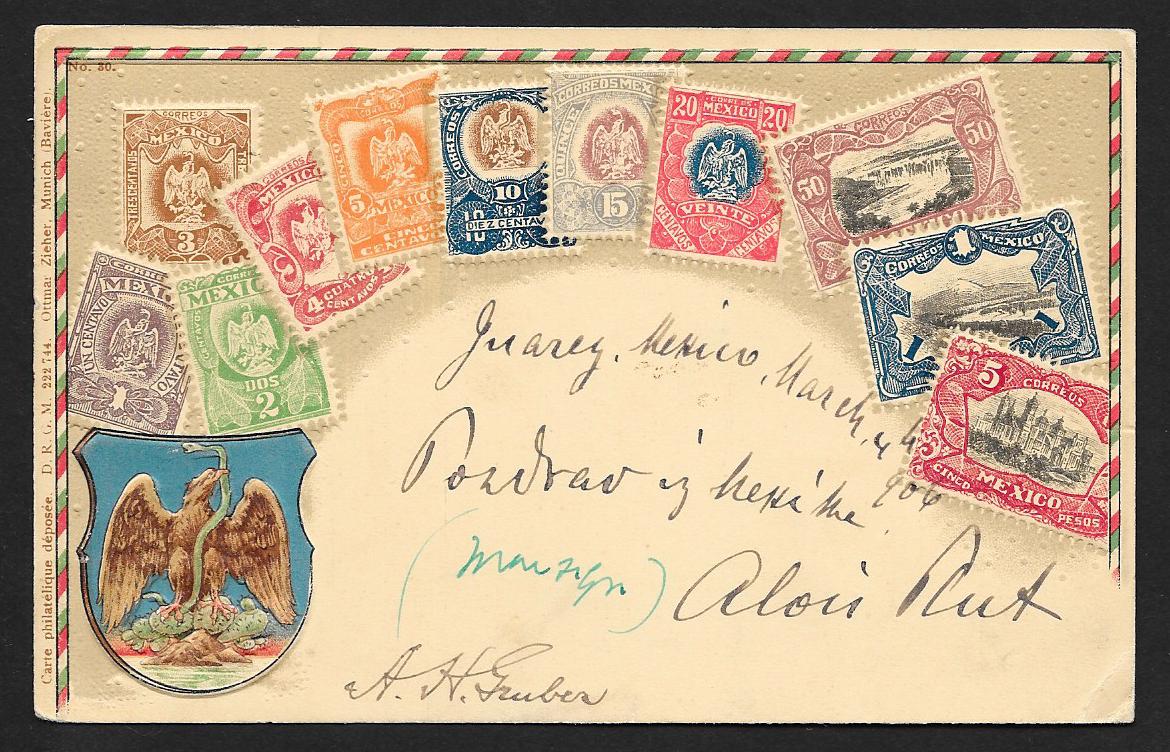 No. 30.
Carte philatélique déposée. D. R. G. M. 222 744. Ottmar Zieher, Munich (Bavière).
CORREOS
MEXICO
TRES CENTAVOS
3
CORREOS
MEXICO
4
CUATRO
CENTAVOS
CORREOS
5
MEXICO
CINCO
CENTAVOS
CORREOS
10
DIEZ CENTAV
CORREOS MEXI
15
20 CORREOS 20
MEXICO
VEINTE
CENTAVOS
CENTAVOS
CORREOS
50
50
CORREOS 1 MEXICO
1
1
5 CORREOS
5
CINCO
MEXICO
PESOS
CORRE
MEXI
UN CENTAVO
1
CORRE
MEXIC
CENTAVOS
DOS
2
Juarez, Mexico, March, 4
906
Pozdrav iz Mexike
Alois Rut
A. H. Gruber